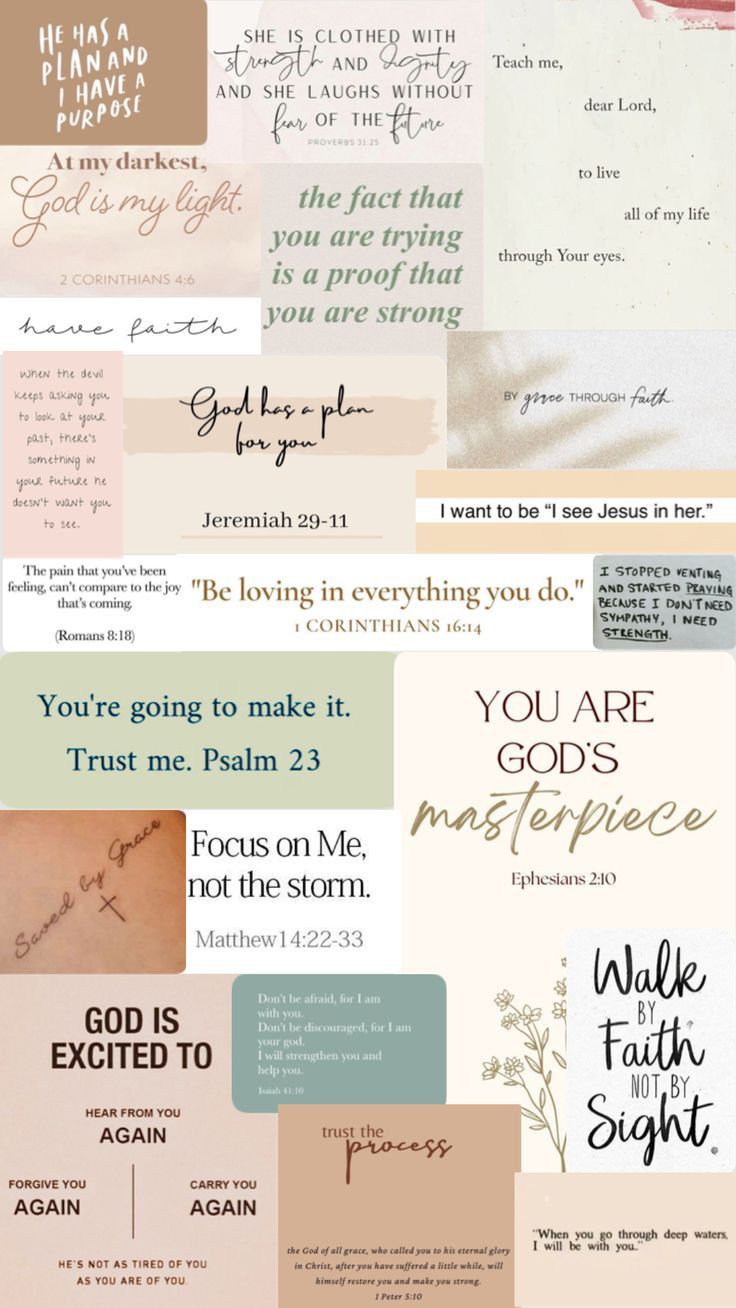 HE HAS A
PLAN AND
I HAVE A
PURPOSE
SHE IS CLOTHED WITH
strength AND dignity
AND SHE LAUGHS WITHOUT
fear OF THE future
PROVERBS 31:25
Teach me,
dear Lord,
to live
all of my life
through Your eyes.
At my darkest,
God is my light.
2 CORINTHIANS 4:6
the fact that
you are trying
is a proof that
you are strong
have faith
When the devil
keeps asking you
to look at your
past, there's
something in
your future he
doesn't want you
to see.
God has a plan
for you
Jeremiah 29-11
BY grace THROUGH faith.
I want to be “I see Jesus in her.”
The pain that you've been
feeling, can't compare to the joy
that's coming.
(Romans 8:18)
"Be loving in everything you do."
1 CORINTHIANS 16:14
I STOPPED VENTING
AND STARTED PRAYING
BECAUSE I DON'T NEED
SYMPATHY, I NEED
STRENGTH.
You're going to make it.
Trust me. Psalm 23
YOU ARE
GOD'S
masterpiece
Ephesians 2:10
Saved by Grace
Focus on Me,
not the storm.
Matthew 14:22-33
Walk
BY
Faith
NOT BY
Sight.
GOD IS
EXCITED TO
HEAR FROM YOU
AGAIN
FORGIVE YOU
AGAIN
CARRY YOU
AGAIN
HE'S NOT AS TIRED OF YOU
AS YOU ARE OF YOU.
Don't be afraid, for I am
with you.
Don't be discouraged, for I am
your god.
I will strengthen you and
help you.
Isaiah 41:10
trust the
process
the God of all grace, who called you to his eternal glory
in Christ, after you have suffered a little while, will
himself restore you and make you strong.
1 Peter 5:10
"When you go through deep waters,
I will be with you."